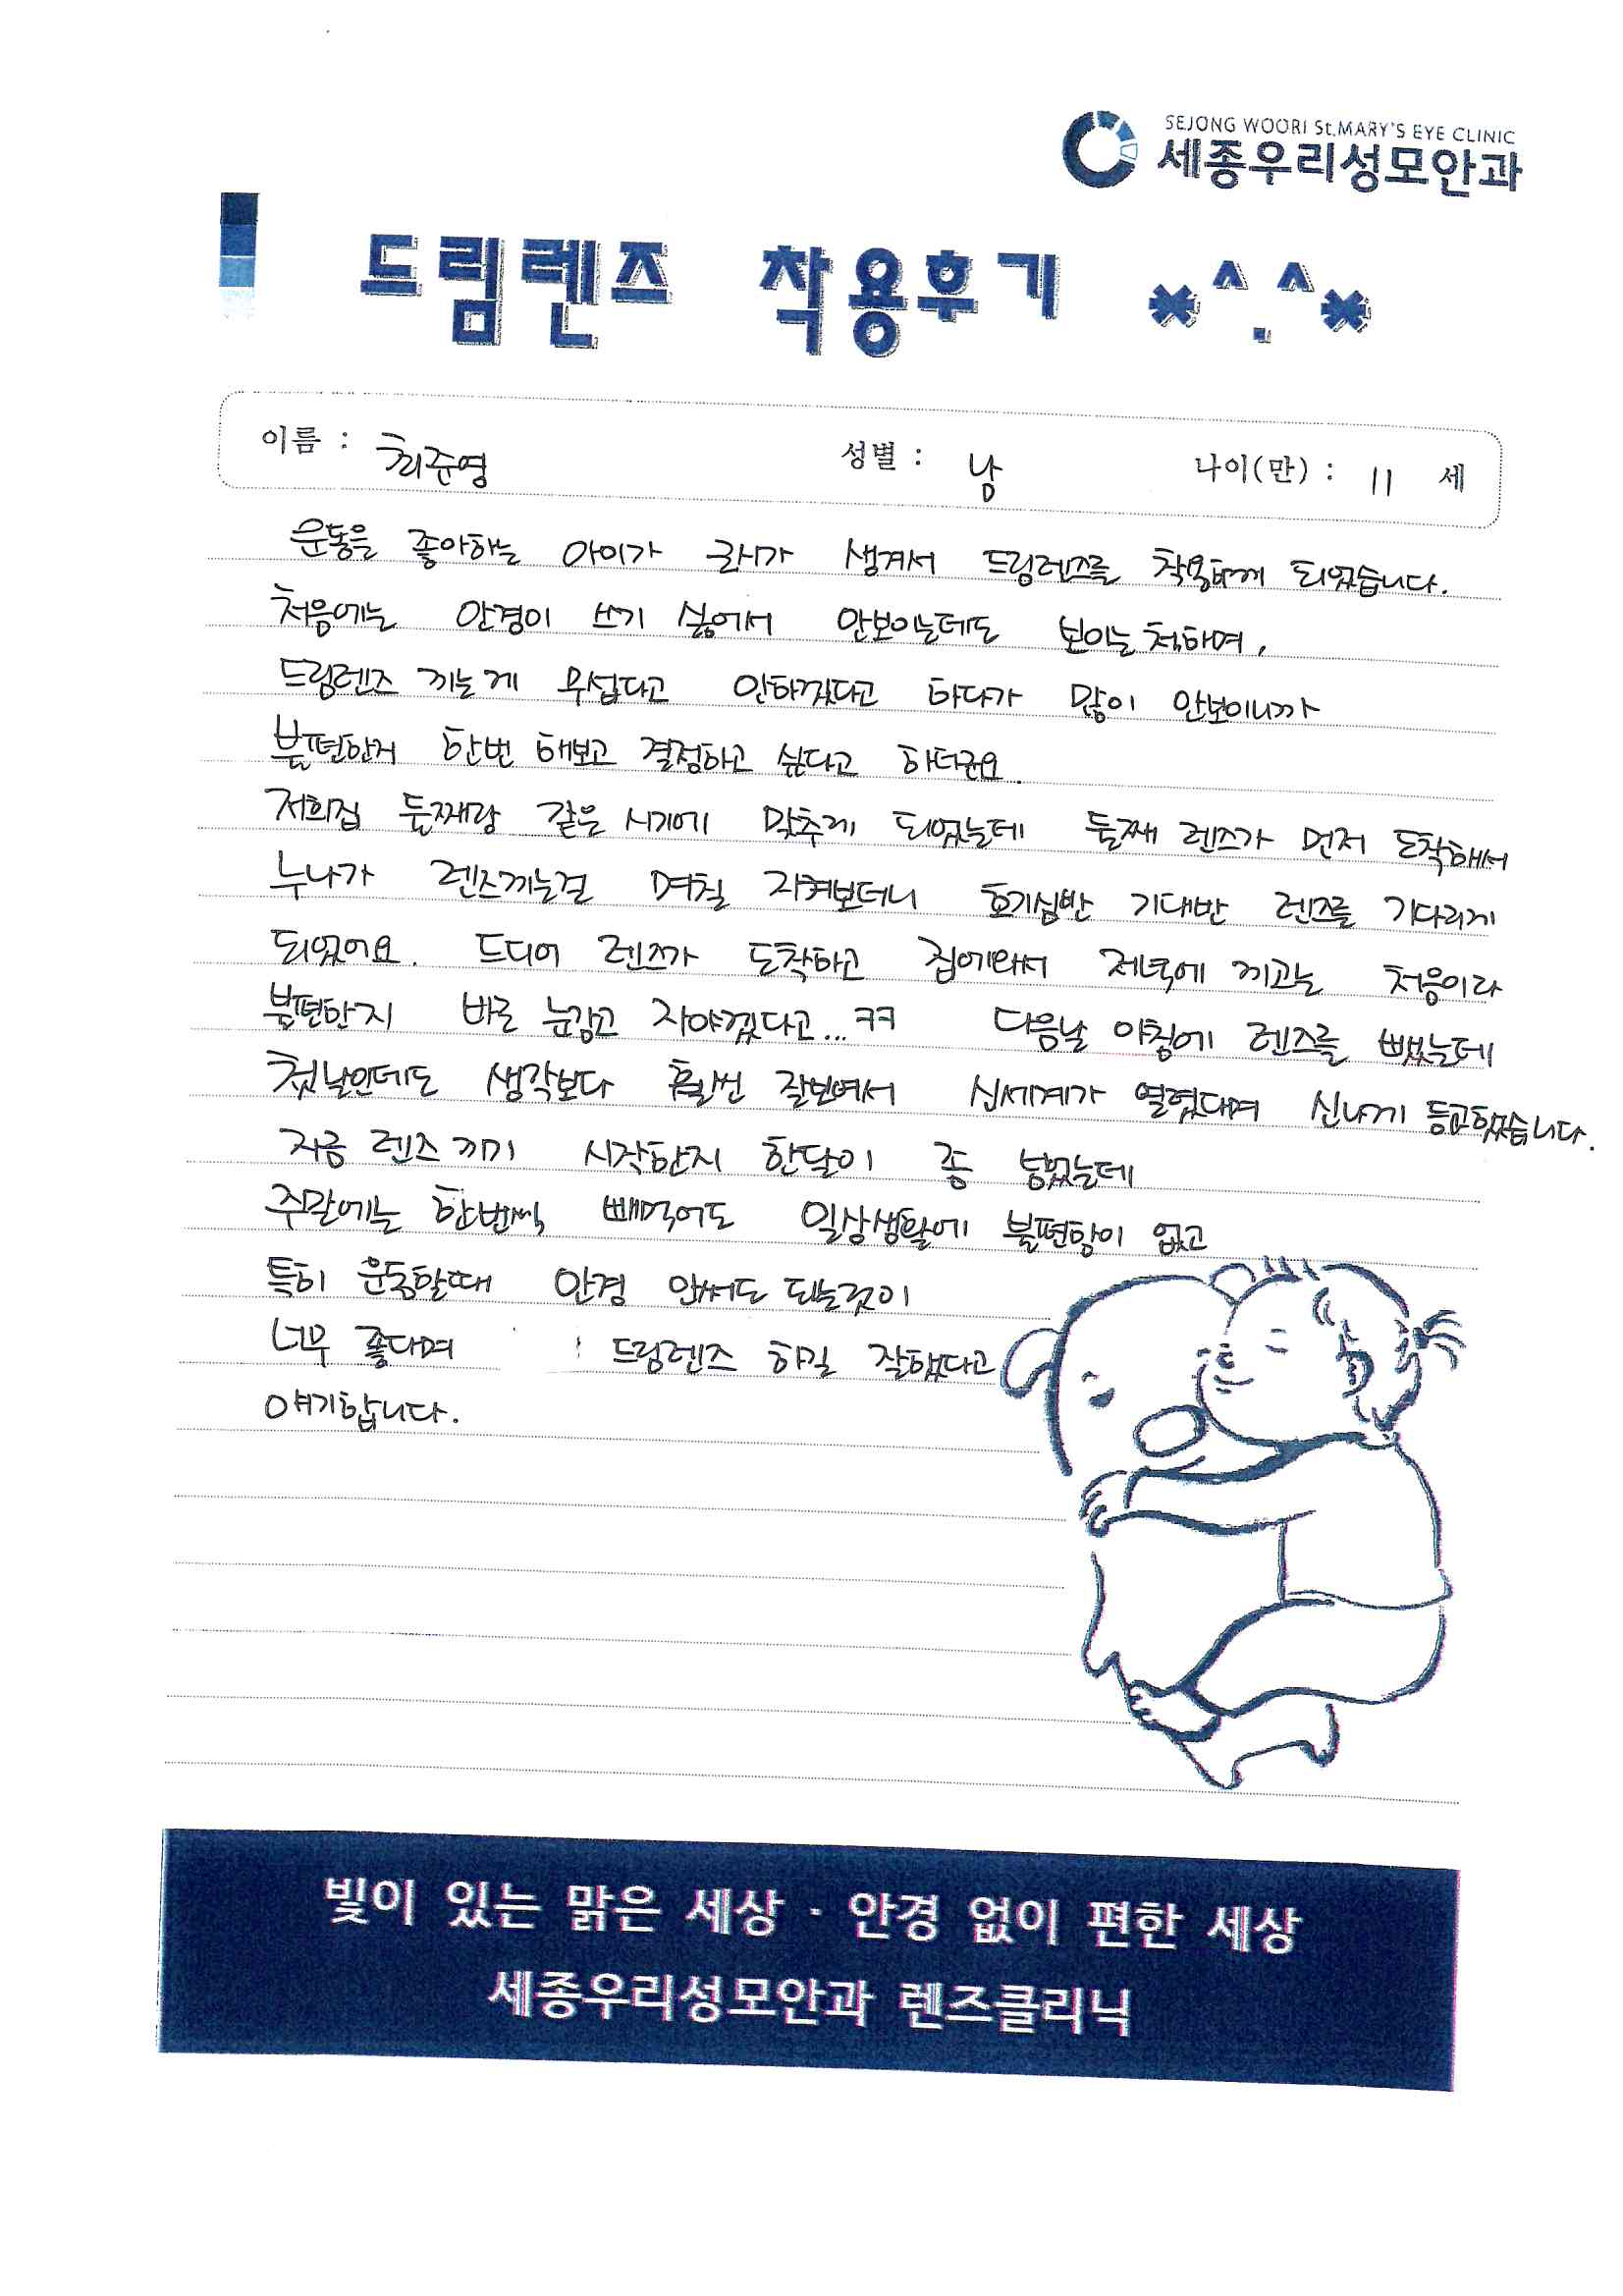 SEJONG WOORI St.MARY'S EYE CLINIC
세종우리성모안과
드림렌즈 착용후기 *^.^*
이름 : 최준영 성별 : 남 나이(만) : 11 세
운동을 좋아하는 아이가 근시가 생겨서 드림렌즈를 착용하게 되었습니다.
처음에는 안경이 쓰기 싫어서 안보이는데도 보이는척하며,
드림렌즈 끼는게 무섭다고 안하겠다고 하다가 많이 안보이니까
불편한지 한번 해보고 결정하고 싶다고 하더군요.
저희집 둘째랑 같은 시기에 맞추게 되었는데 둘째 렌즈가 먼저 도착해서
누나가 렌즈끼는걸 며칠 지켜보더니 호기심반 기대반 렌즈를 기다리게
되었어요. 드디어 렌즈가 도착하고 집에와서 저녁에 끼고는 처음이라
불편한지 바로 눈감고 자야겠다고... ㅋㅋ 다음날 아침에 렌즈를 뺐는데
첫날인데도 생각보다 훨씬 잘보여서 신세계가 열렸다며 신나게 등교했습니다.
지금 렌즈 끼기 시작한지 한달이 좀 넘었는데
주말에는 한번씩 빼먹어도 일상생활에 불편함이 없고
특히 운동할때 안경 안써도 되는것이
너무 좋다며 드림렌즈 하길 잘했다고
얘기합니다.
빛이 있는 맑은 세상 · 안경 없이 편한 세상
세종우리성모안과 렌즈클리닉